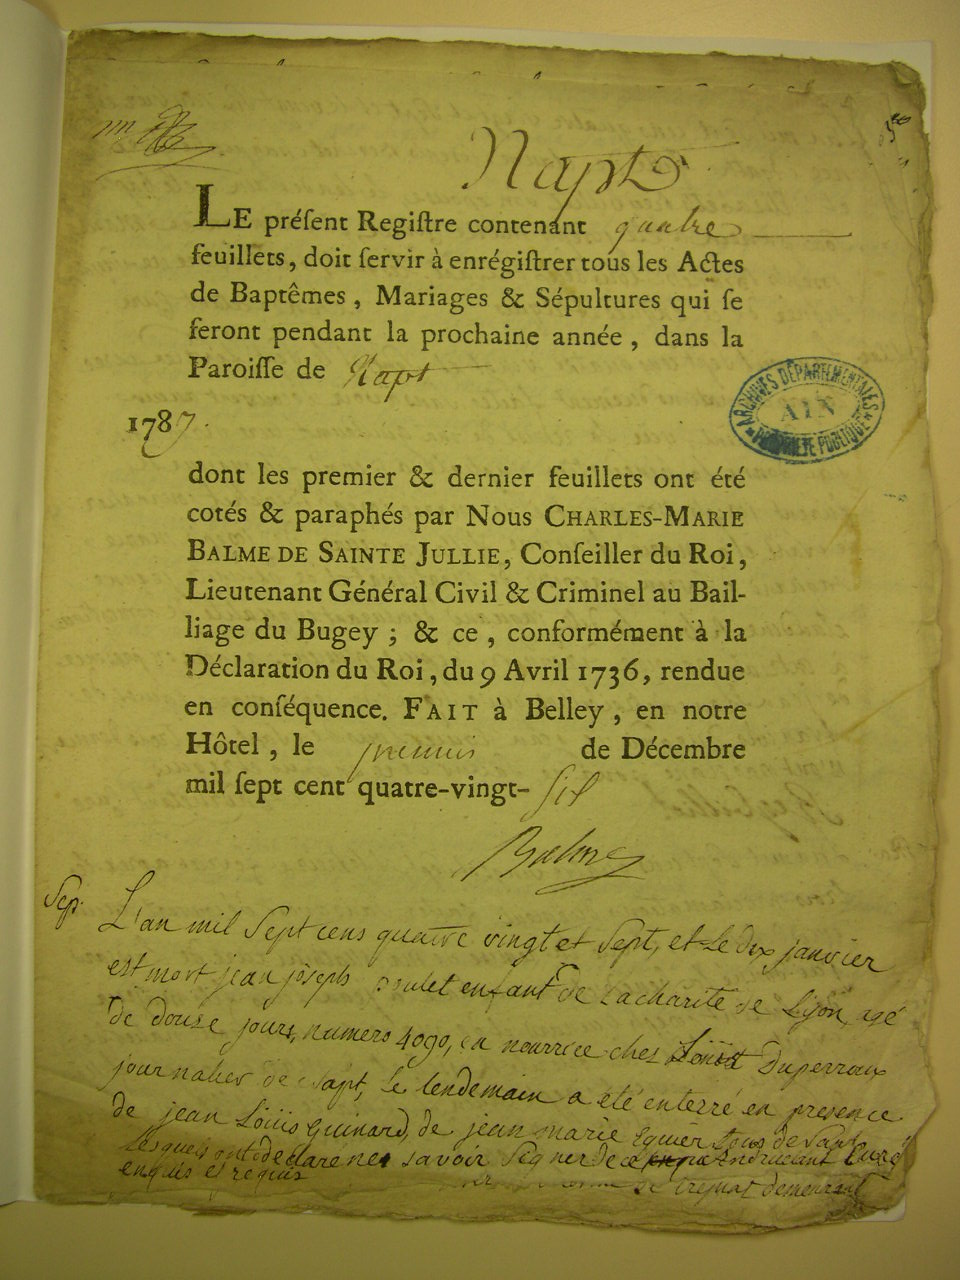 Napt
LE préſent Regiſtre contenant quatre
feuillets, doit ſervir à enrégiſtrer tous les Actes
de Baptêmes, Mariages & Sépultures qui ſe
feront pendant la prochaine année, dans la
Paroiſſe de Napt
ARCHIVES DÉPARTEMENTALES
AIN
PROPRIÉTÉ PUBLIQUE
1787.
dont les premier & dernier feuillets ont été
cotés & paraphés par Nous CHARLES-MARIE
BALME DE SAINTE JULLIE, Conſeiller du Roi,
Lieutenant Général Civil & Criminel au Bail-
liage du Bugey ; & ce, conformément à la
Déclaration du Roi, du 9 Avril 1736, rendue
en conſéquence. FAIT à Belley, en notre
Hôtel, le premier de Décembre
mil ſept cent quatre-vingt- ſix
Balme
Sep.
L'an mil Sept cens quatre vingt et Sept, et Le dix janvier
est mort jean joseph enfant de La charité de Lÿon, agé
de douse jours, numero 4090, en nourrice chez Duperroux
journalier de Napt, Le lendemain a été enterré en presence
de jean Loüis Guinard, de jean marie tous de Napt
Lesquels ont declaré ne savoir Signer de ce Curé
enquis et requis